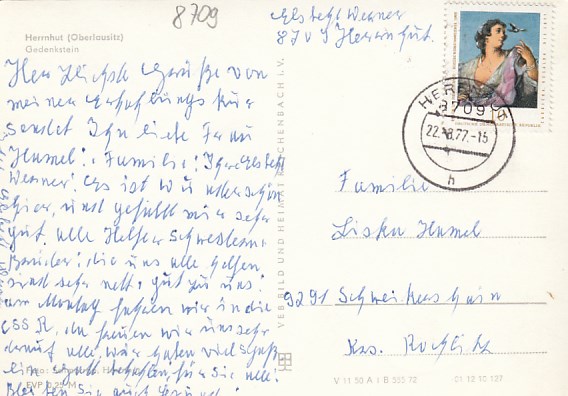 8709
Herrnhut (Oberlausitz)
Gedenkstein
Werner
8709 Herrnhut.
Herzlichste Grüße von
meiner Erholungskur
sendet Ihn liebe Frau
Humel! Familie!
Werner. Es ist wunderschön
hier, und gefällt mir sehr
gut. alle Helfer Schwestern
Brüder! die uns alle helfen
sind sehr nett, gut zu uns!
am Montag fahren wir in die
CSSR, da freuen wir uns sehr
darauf alle, wir haben viel Spaß
ein für Sie alle!
Bleiben Sie auch
EVP 0,25 M
VEB BILD UND HEIMAT REICHENBACH i. V.
DEUTSCHE DEMOKRATISCHE REPUBLIK
HERRNHUT
8709
22.-8.77.-15
h
Familie
Liska Humel
9291 Schweikershain
Krs. Rochlitz
V 11 50 A 1 B 555 72
01 12 10 127